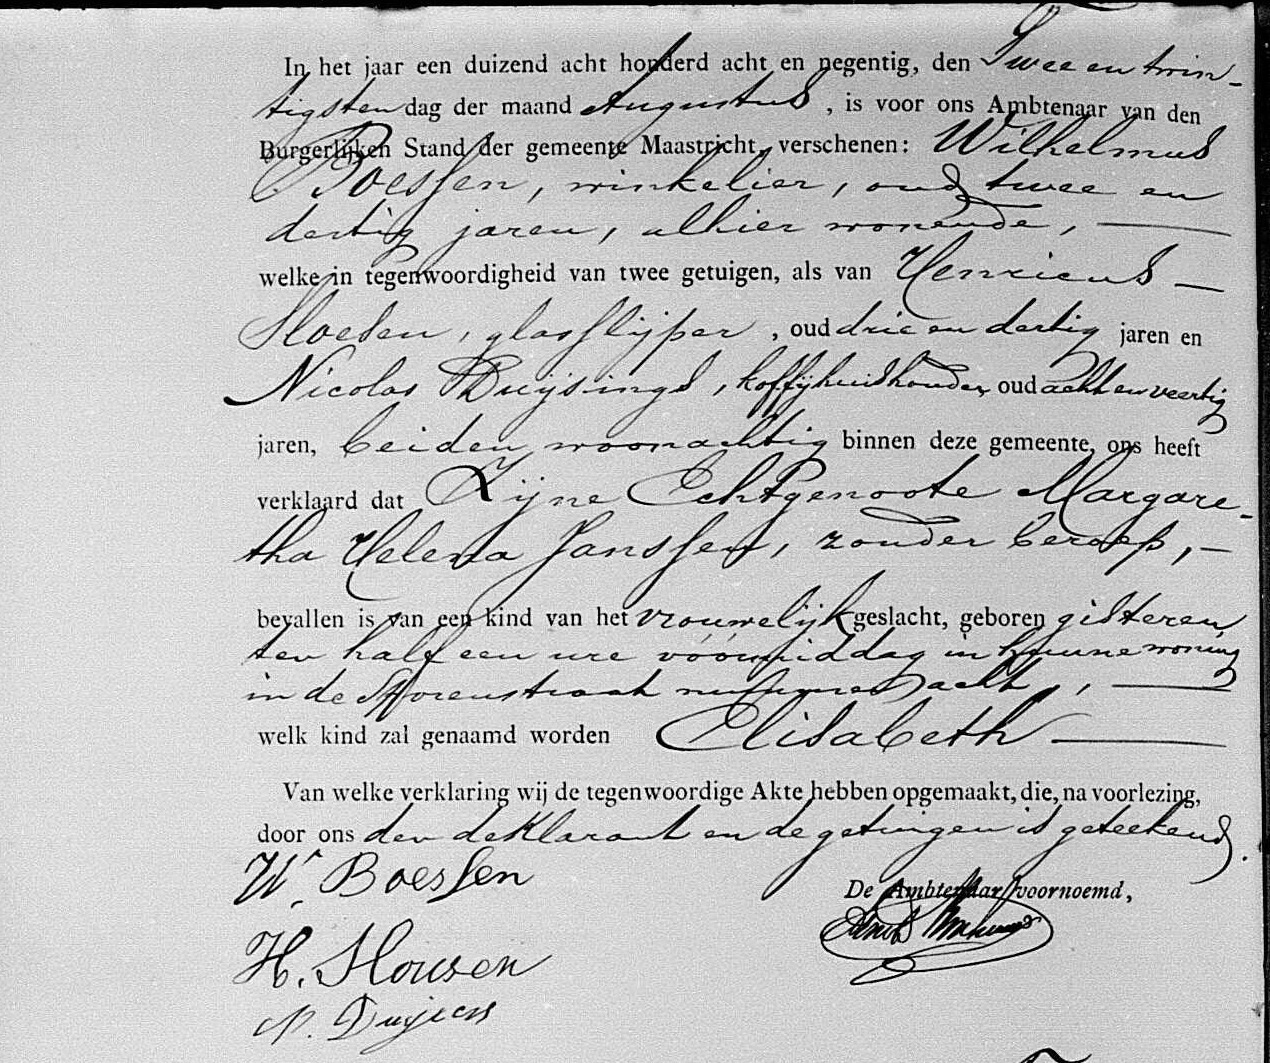 In het jaar een duizend acht honderd acht en negentig, den Twee en twin-
tigsten dag der maand Augustus, is voor ons Ambtenaar van den
Burgerlijken Stand der gemeente Maastricht, verschenen: Wilhelmus
Boessen, winkelier, oud twee en
dertig jaren, alhier wonende,
welke in tegenwoordigheid van twee getuigen, als van Henricus
Hoesen, glasslijper, oud drie en dertig jaren en
Nicolas Duijsings, koffijhuishouder, oud acht en veertig
jaren, beiden woonachtig binnen deze gemeente, ons heeft
verklaard dat Zijne Echtgenoote Margare-
tha Helena Janssen, zonder beroep,
bevallen is van een kind van het vrouwelijk geslacht, geboren gisteren
ten half een ure vóórmiddag in hunne woning
in de straat nummer acht,
welk kind zal genaamd worden Elisabeth
Van welke verklaring wij de tegenwoordige Akte hebben opgemaakt, die, na voorlezing,
door ons den deklarant en de getuigen is geteekend.
Wr. Boessen
De Ambtenaar voornoemd,
H. Housen
N.